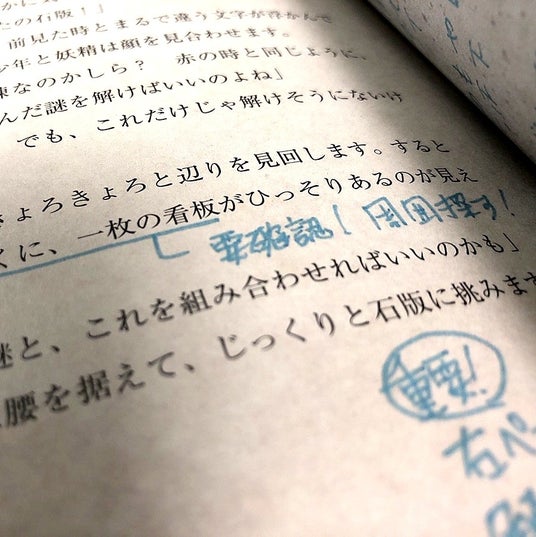 たの石版！」
前見た時とまるで違う文字が浮かんで
少年と妖精は顔を見合わせます。
なのかしら？　赤の時と同じように、
んだ謎を解けばいいのよね」
でも、これだけじゃ解けそうにないけ
きょろきょろと辺りを見回します。すると
くに、一枚の看板がひっそりあるのが見え
要確認！周囲探す！
謎と、これを組み合わせればいいのかも」
腰を据えて、じっくりと石版に挑みます
重要！
右ペ